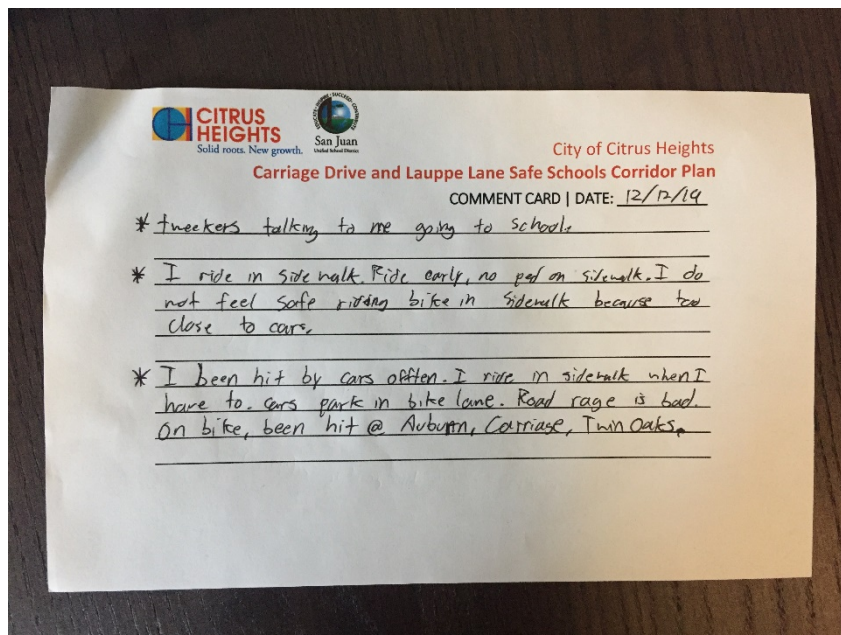 CITRUS
HEIGHTS
Solid roots. New growth.
EDUCATE · INSPIRE · SUCCEED · CONTRIBUTE
San Juan
Unified School District
City of Citrus Heights
Carriage Drive and Lauppe Lane Safe Schools Corridor Plan
COMMENT CARD | DATE: 12/12/19
* tweekers talking to me going to school.
* I ride in sidewalk. Ride early, no ped on sidewalk. I do
not feel safe riding bike in sidewalk because too
close to cars.
* I been hit by cars offten. I ride in sidewalk when I
have to. cars park in bike lane. Road rage is bad.
On bike, been hit @ Auburn, Carriage, Twin Oaks.